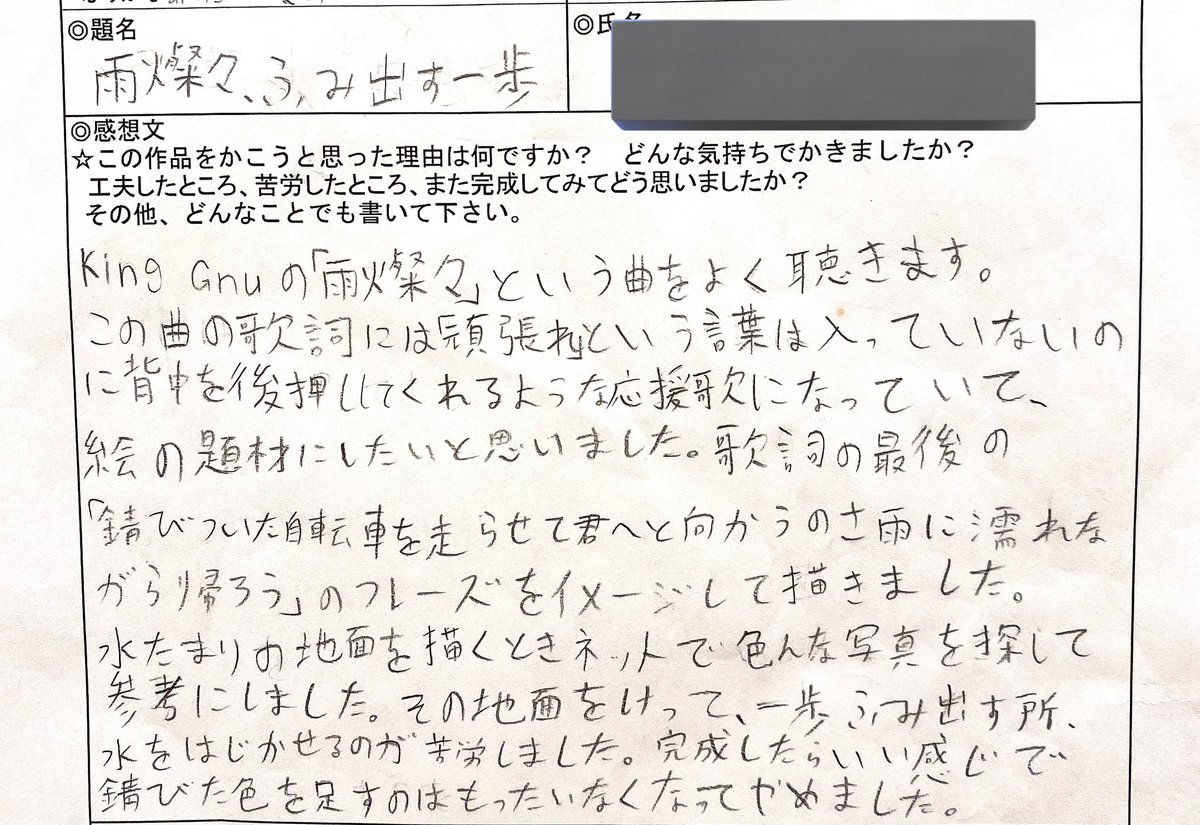 ◎題名
◎氏名
雨燦々、ふみ出す一歩
◎感想文
☆この作品をかこうと思った理由は何ですか？　どんな気持ちでかきましたか？
工夫したところ、苦労したところ、また完成してみてどう思いましたか？
その他、どんなことでも書いて下さい。
King Gnuの「雨燦々」という曲をよく聴きます。
この曲の歌詞には「頑張れ」という言葉は入っていないの
に背中を後押ししてくれるような応援歌になっていて、
絵の題材にしたいと思いました。歌詞の最後の
「錆びついた自転車を走らせて君へと向かうのさ雨に濡れな
がら帰ろう」のフレーズをイメージして描きました。
水たまりの地面を描くときネットで色んな写真を探して
参考にしました。その地面をけって、一歩ふみ出す所、
水をはじかせるのが苦労しました。完成したらいい感じで
錆びた色を足すのはもったいなくなってやめました。